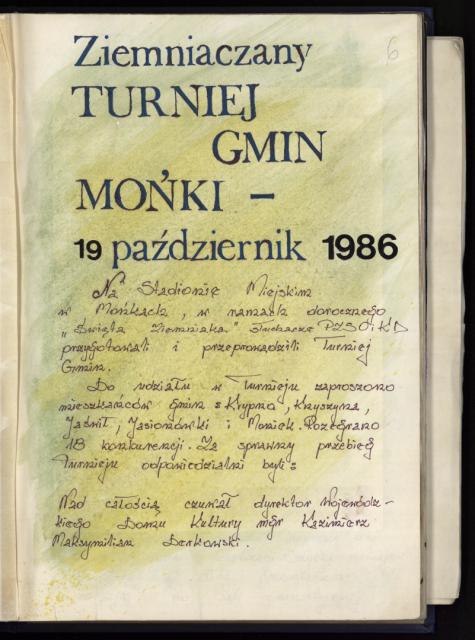 6
Ziemniaczany
TURNIEJ
GMIN
MOŃKI –
19 październik 1986
Na Stadionie Miejskim
w Mońkach, w ramach dorocznego
„Święta Ziemniaka" słuchacze PZSOiKD
przygotowali i przeprowadzili Turniej
Gmin.
Do udziału w Turnieju zaproszono
mieszkańców gmin: Krypno, Knyszyna,
Jaświł, Jasionówki i Moniek. Rozegrano
18 konkurencji. Za sprawny przebieg
Turnieju odpowiedzialni byli:
Nad całością czuwał dyrektor Wojewódz-
kiego Domu Kultury mgr Kazimierz
Maksymilian Derkowski.